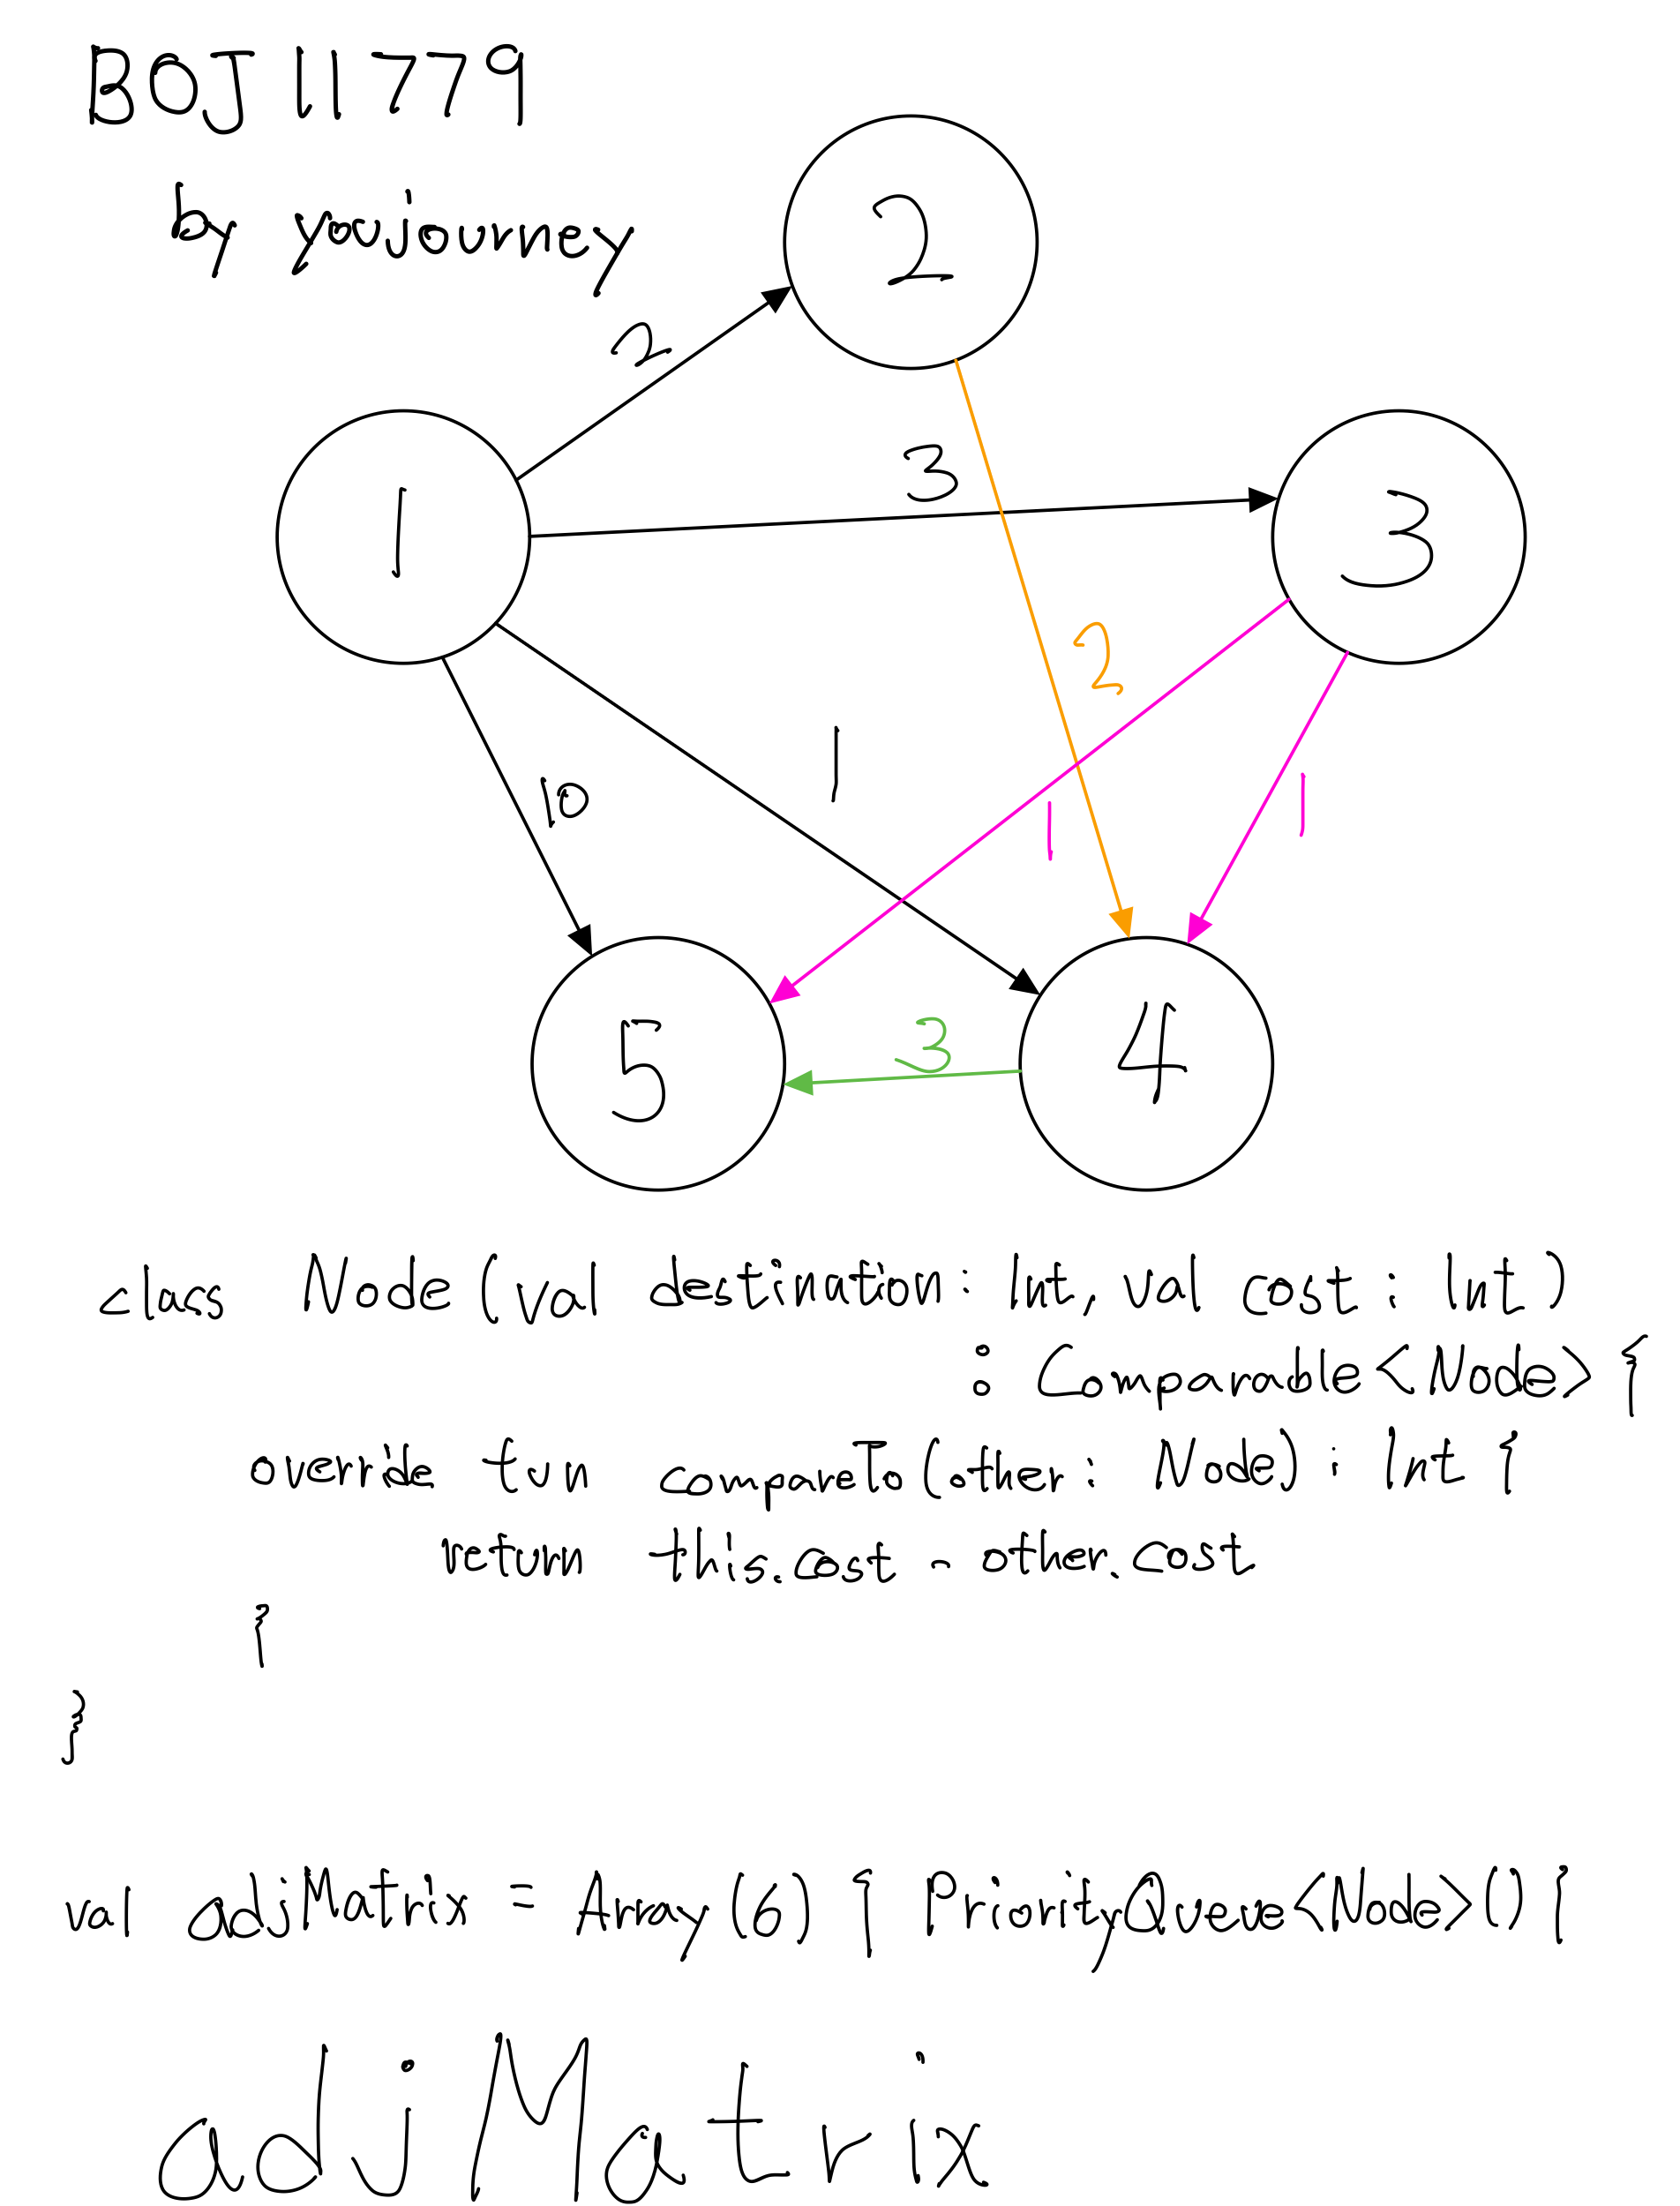 BOJ 11779
by youjourney
2
2
3
1
3
2
1
10
1
1
5
3
4
class Node (val destination : Int, val cost : Int)
: Comparable<Node> {
override fun compareTo(other : Node) : Int {
return this.cost - other.cost
}
}
val adjMatrix = Array(6) { PriorityQueue<Node>() }
adjMatrix